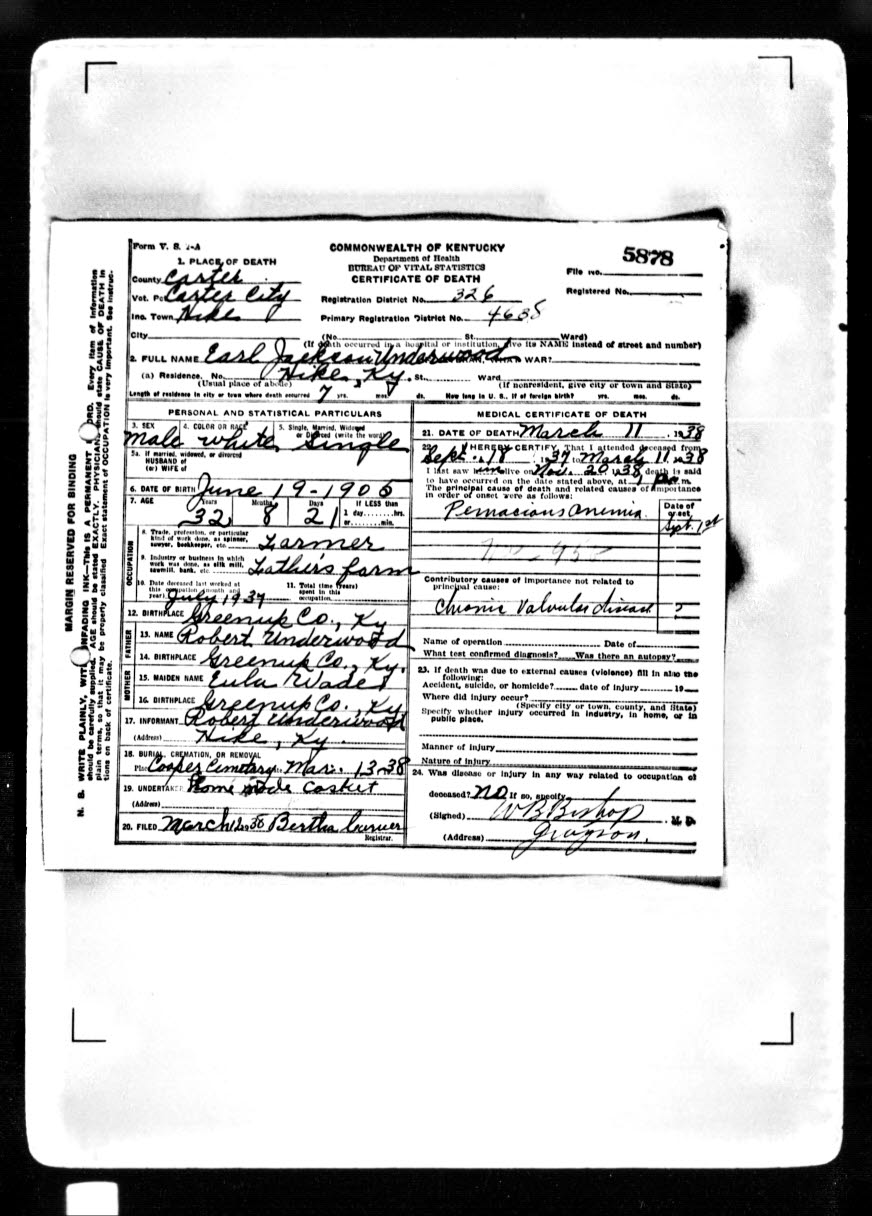 Form V. S. 1-A
COMMONWEALTH OF KENTUCKY
Department of Health
BUREAU OF VITAL STATISTICS
CERTIFICATE OF DEATH
5878
File No.
Registered No.
1. PLACE OF DEATH
County Carter
Vot. Pct Carter City
Inc. Town Hike
Registration District No. 326
Primary Registration District No. 4635
City (No. St. Ward)
(If death occurred in a hospital or institution, give its NAME instead of street and number)
2. FULL NAME Earl Jackson Underwood WAR?
(a) Residence, No. Hike, Ky. St., Ward
(Usual place of abode) (If nonresident, give city or town and State)
Length of residence in city or town where death occurred 7 yrs. mos. ds. How long in U. S., if of foreign birth? yrs. mos. ds.
PERSONAL AND STATISTICAL PARTICULARS
3. SEX 4. COLOR OR RACE 5. Single, Married, Widowed
or Divorced (write the word)
Male white Single
5a. If married, widowed, or divorced
HUSBAND of
(or) WIFE of
6. DATE OF BIRTH June 19-1905
7. AGE Years Months Days If LESS than
32 8 21 1 day hrs.
or min.
OCCUPATION
8. Trade, profession, or particular
kind of work done, as spinner,
sawyer, bookkeeper, etc. Farmer
9. Industry or business in which
work was done, as silk mill,
sawmill, bank, etc. Father's farm
10. Date deceased last worked at
this occupation (month and
year) July 1937
11. Total time (years)
spent in this
occupation
12. BIRTHPLACE Greenup Co., Ky
FATHER
13. NAME Robert Underwood
14. BIRTHPLACE Greenup Co., Ky.
MOTHER
15. MAIDEN NAME Eula Wades
16. BIRTHPLACE Greenup Co., Ky
17. INFORMANT Robert Underwood
(Address) Hike, Ky.
18. BURIAL, CREMATION, OR REMOVAL
Place Cooper Cemetary Mar. 13-38
19. UNDERTAKER Home made Casket
(Address)
20. FILED March 12 38 Bertha
Registrar.
MEDICAL CERTIFICATE OF DEATH
21. DATE OF DEATH March 11, 1938
22. I HEREBY CERTIFY, That I attended deceased from
Sept. 18 1937 to March 11 1938
I last saw him alive on Nov. 20 1938, death is said
to have occurred on the date stated above, at P. m.
The principal cause of death and related causes of importance
in order of onset were as follows:
Date of
onset
Pernacious anemia Sept. 1st
Contributory causes of importance not related to
principal cause:
Chronic Valvular disease ?
Name of operation Date of
What test confirmed diagnosis? Was there an autopsy?
23. If death was due to external causes (violence) fill in also the
following:
Accident, suicide, or homicide? date of injury 19
Where did injury occur?
(Specify city or town, county, and State)
Specify whether injury occurred in industry, in home, or in
public place.
Manner of injury
Nature of injury
24. Was disease or injury in any way related to occupation of
deceased? no If so, specify
(Signed) W B Bishop M. D.
(Address) Grayson.
MARGIN RESERVED FOR BINDING